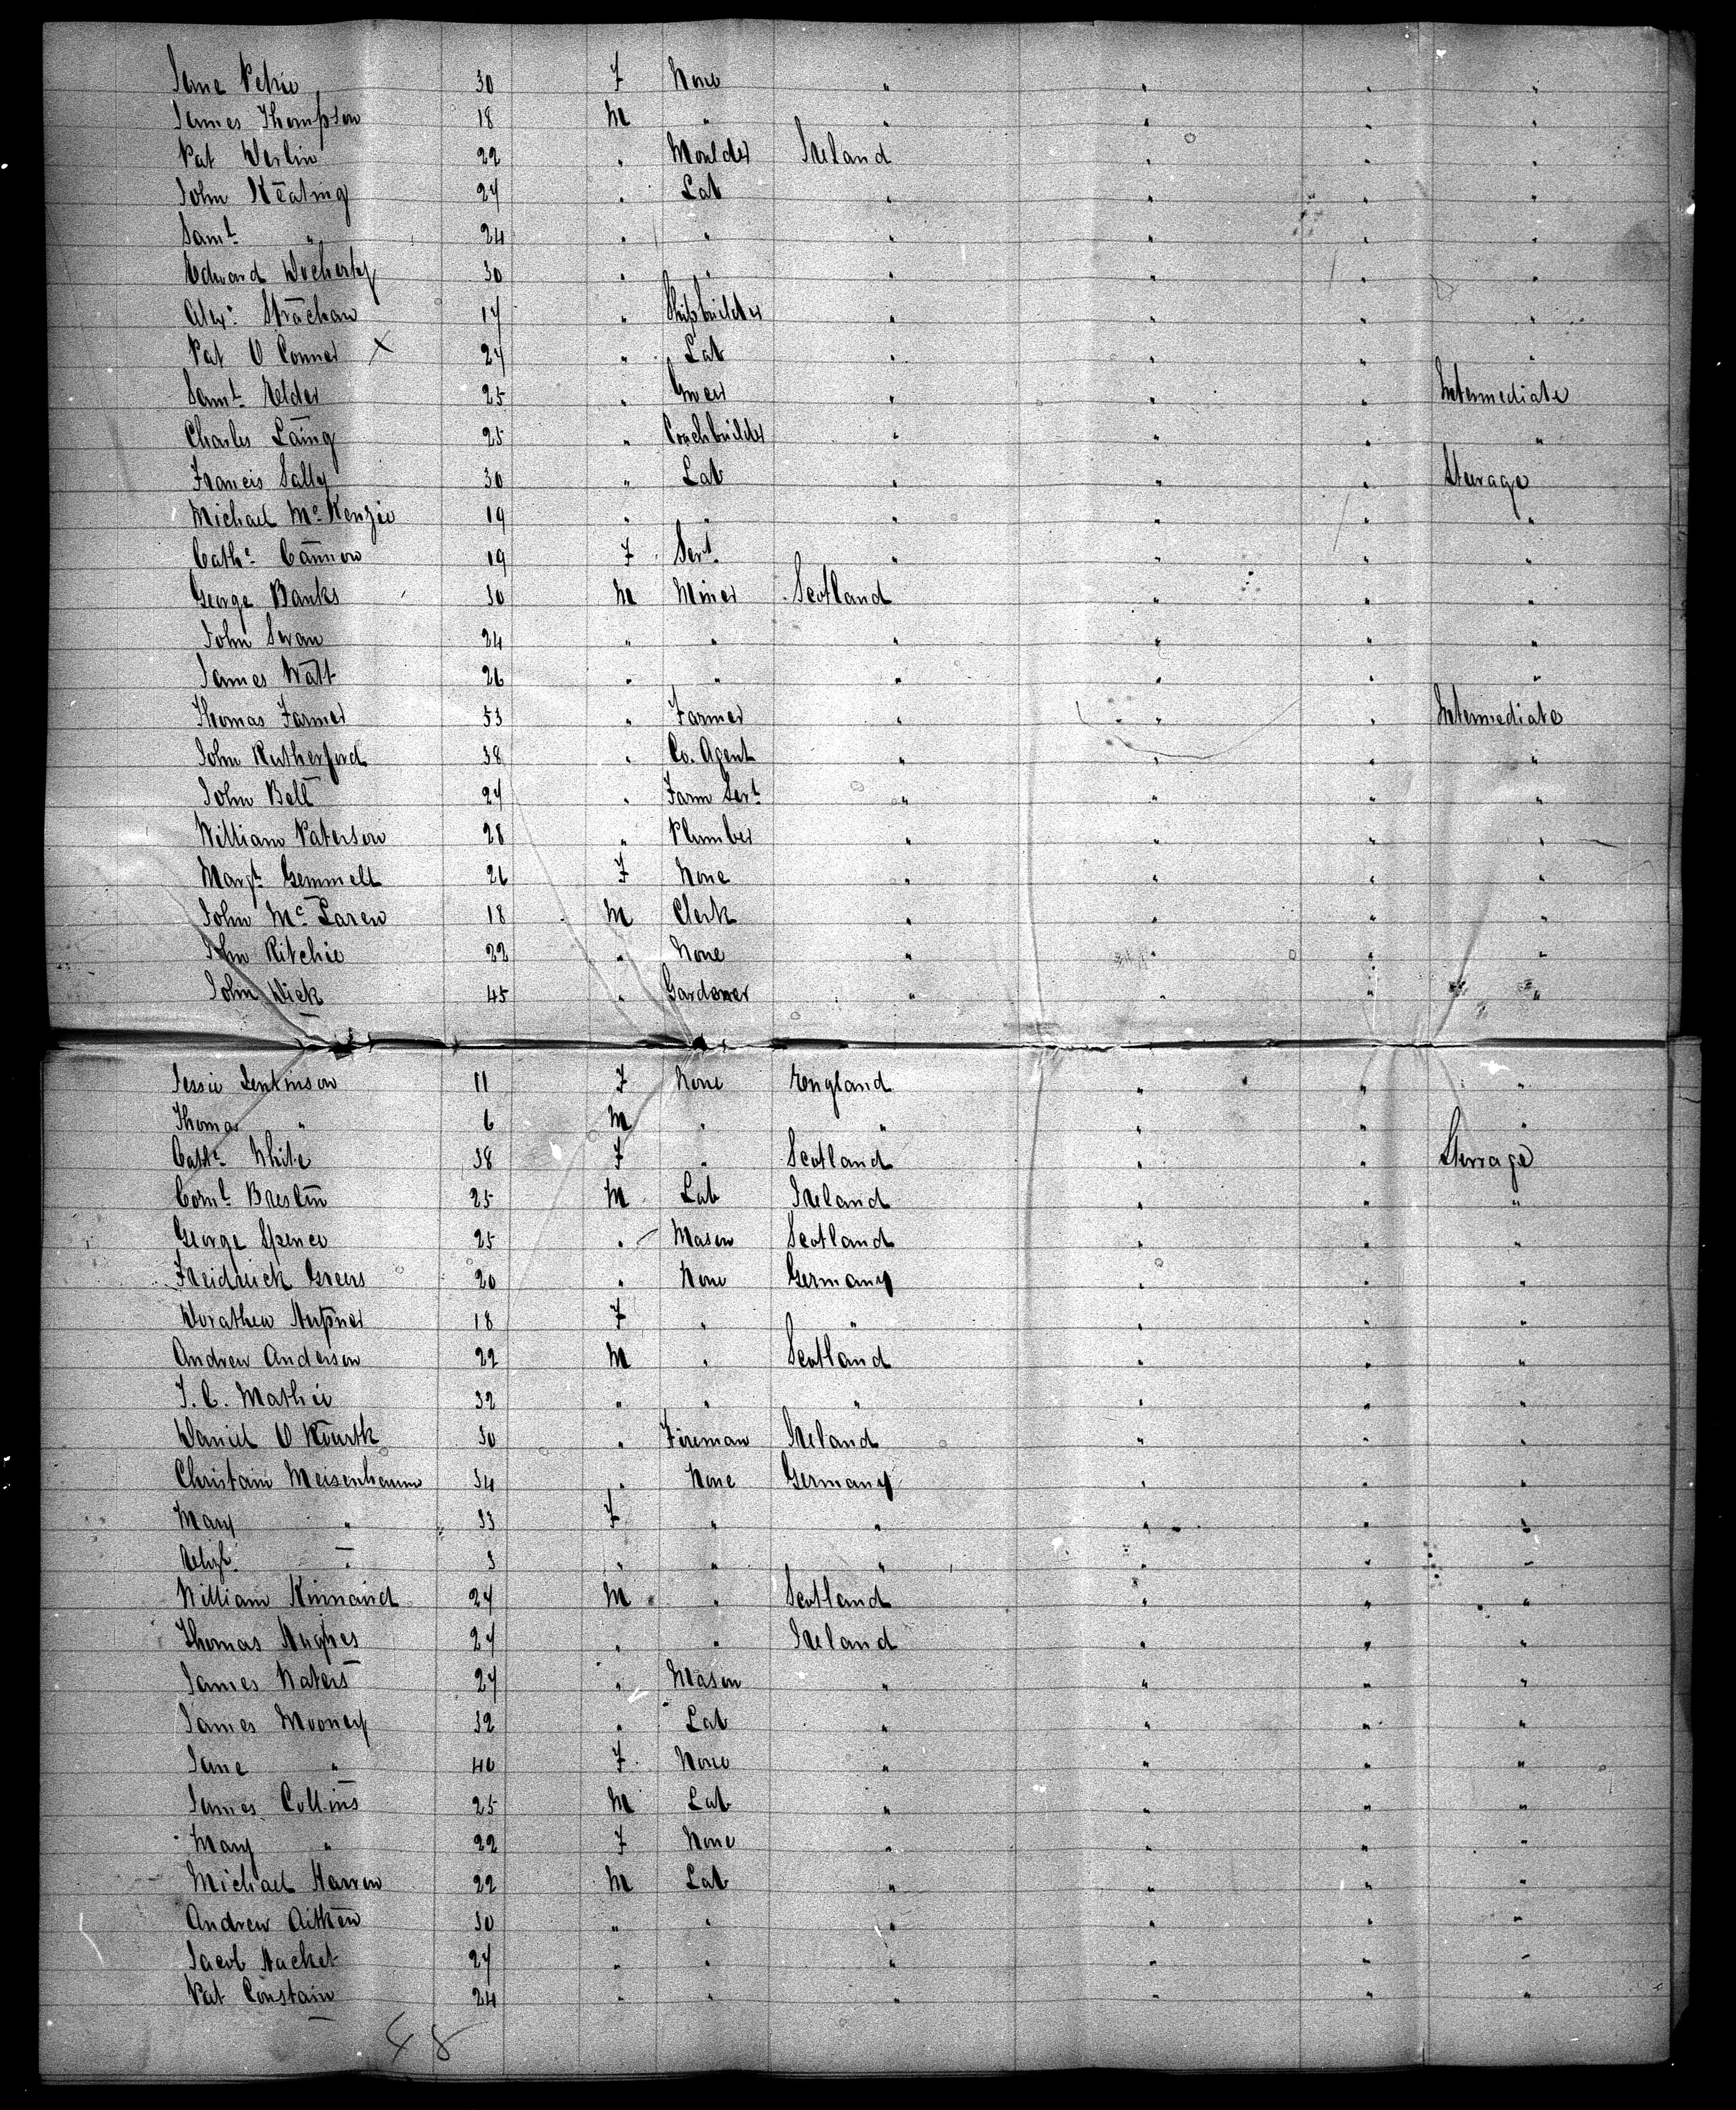 Jane Petrie 30 F None " " " "
James Thompson 18 M " " " " "
Pat Devlin 22 " Moulder Ireland " " "
John Keating 24 " Lab " " " "
Saml. " 24 " " " " " "
Edward Docherty 30 " " " " " "
Alexr. Strachan 17 " Shipbuilder " " " "
Pat O Conner X 24 " Lab " " " "
Saml. Elder 25 " " " " Intermediate
Charles Laing 25 " Coachbuilder " " " "
Francis Sally 30 " Lab " " " Steerage
Michael McKenzie 19 " " " " " "
Cathe. Cannon 19 F Sert. " " " "
George Banks 30 M Miner Scotland " " "
John Swan 24 " " " " " "
James Watt 26 " " " " " "
Thomas Farmer 53 " Farmer " " " Intermediate
John Rutherford 38 " Co. Agent " " " "
John Bell 24 " Farm Sert. " " " "
William Paterson 28 " Plumber " " " "
Margt. Gemmell 26 F None " " " "
John McLaren 18 M Clerk " " " "
John Ritchie 22 " None " " " "
John Dick 45 " Gardener " " " "
Jessie Jenkinson 11 F None England " " "
Thomas " 6 M " " " " "
Cathe. White 38 F " Scotland " " Sterrage
Cornl. Breslin 25 M Lab Ireland " " "
George Spence 25 " Mason Scotland " " "
Freidrick Greers 20 " None Germany " " "
Dorathea Hupner 18 F " " " " "
Andrew Anderson 22 M " Scotland " " "
J. C. Mathie 32 " " " " " "
Daniel O Rourk 30 " Fireman Ireland " " "
Christain Meisenhaum 34 " None Germany " " "
Mary " 33 F " " " " "
Eliz. " 3 " " " " " "
William Kinnaird 24 M " Scotland " " "
Thomas Hughes 24 " " Ireland " " "
James Waters 24 " Mason " " " "
James Mooney 32 " Lab " " " "
Jane " 40 F None " " " "
James Collins 25 M Lab " " " "
Mary " 22 F None " " " "
Michael Harren 22 M Lab " " " "
Andrew Aitken 30 " " " " " "
Jacob Hacket 24 " " " " " "
Pat Constain 24 " " " " " "
48